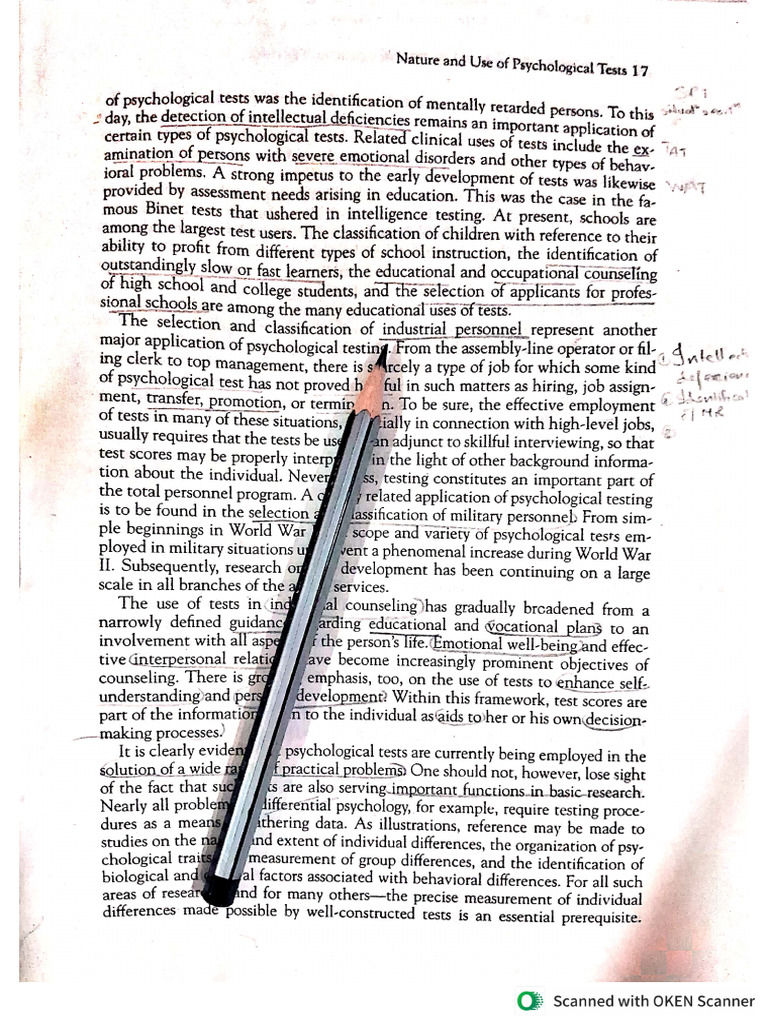 Nature and Use of Psychological Tests 17
of psychological tests was the identification of mentally retarded persons. To this
day, the detection of intellectual deficiencies remains an important application of
certain types of psychological tests. Related clinical uses of tests include the ex-
amination of persons with severe emotional disorders and other types of behav-
ioral problems. A strong impetus to the early development of tests was likewise
provided by assessment needs arising in education. This was the case in the fa-
mous Binet tests that ushered in intelligence testing. At present, schools are
among the largest test users. The classification of children with reference to their
ability to profit from different types of school instruction, the identification of
outstandingly slow or fast learners, the educational and occupational counseling
of high school and college students, and the selection of applicants for profes-
sional schools are among the many educational uses of tests.
The selection and classification of industrial personnel represent another
major application of psychological testing. From the assembly-line operator or fil-
ing clerk to top management, there is scarcely a type of job for which some kind
of psychological test has not proved h ful in such matters as hiring, job assign-
ment, transfer, promotion, or termin n. To be sure, the effective employment
of tests in many of these situations, ially in connection with high-level jobs,
usually requires that the tests be use an adjunct to skillful interviewing, so that
test scores may be properly interp in the light of other background informa-
tion about the individual. Never ss, testing constitutes an important part of
the total personnel program. A c y related application of psychological testing
is to be found in the selection a lassification of military personnel. From sim-
ple beginnings in World War scope and variety of psychological tests em-
ployed in military situations u vent a phenomenal increase during World War
II. Subsequently, research o development has been continuing on a large
scale in all branches of the a services.
The use of tests in ind al counseling has gradually broadened from a
narrowly defined guidanc arding educational and vocational plans to an
involvement with all aspe f the person's life. Emotional well-being and effec-
tive interpersonal relatio ave become increasingly prominent objectives of
counseling. There is gro emphasis, too, on the use of tests to enhance self-
understanding and pers development. Within this framework, test scores are
part of the information n to the individual as aids to her or his own decision-
making processes.
It is clearly eviden psychological tests are currently being employed in the
solution of a wide ra f practical problems. One should not, however, lose sight
of the fact that suc ts are also serving important functions in basic research.
Nearly all problem differential psychology, for example, require testing proce-
dures as a means thering data. As illustrations, reference may be made to
studies on the na nd extent of individual differences, the organization of psy-
chological trait measurement of group differences, and the identification of
biological and al factors associated with behavioral differences. For all such
areas of resear and for many others—the precise measurement of individual
differences made possible by well-constructed tests is an essential prerequisite.
TAT
WAT
Scanned with OKEN Scanner